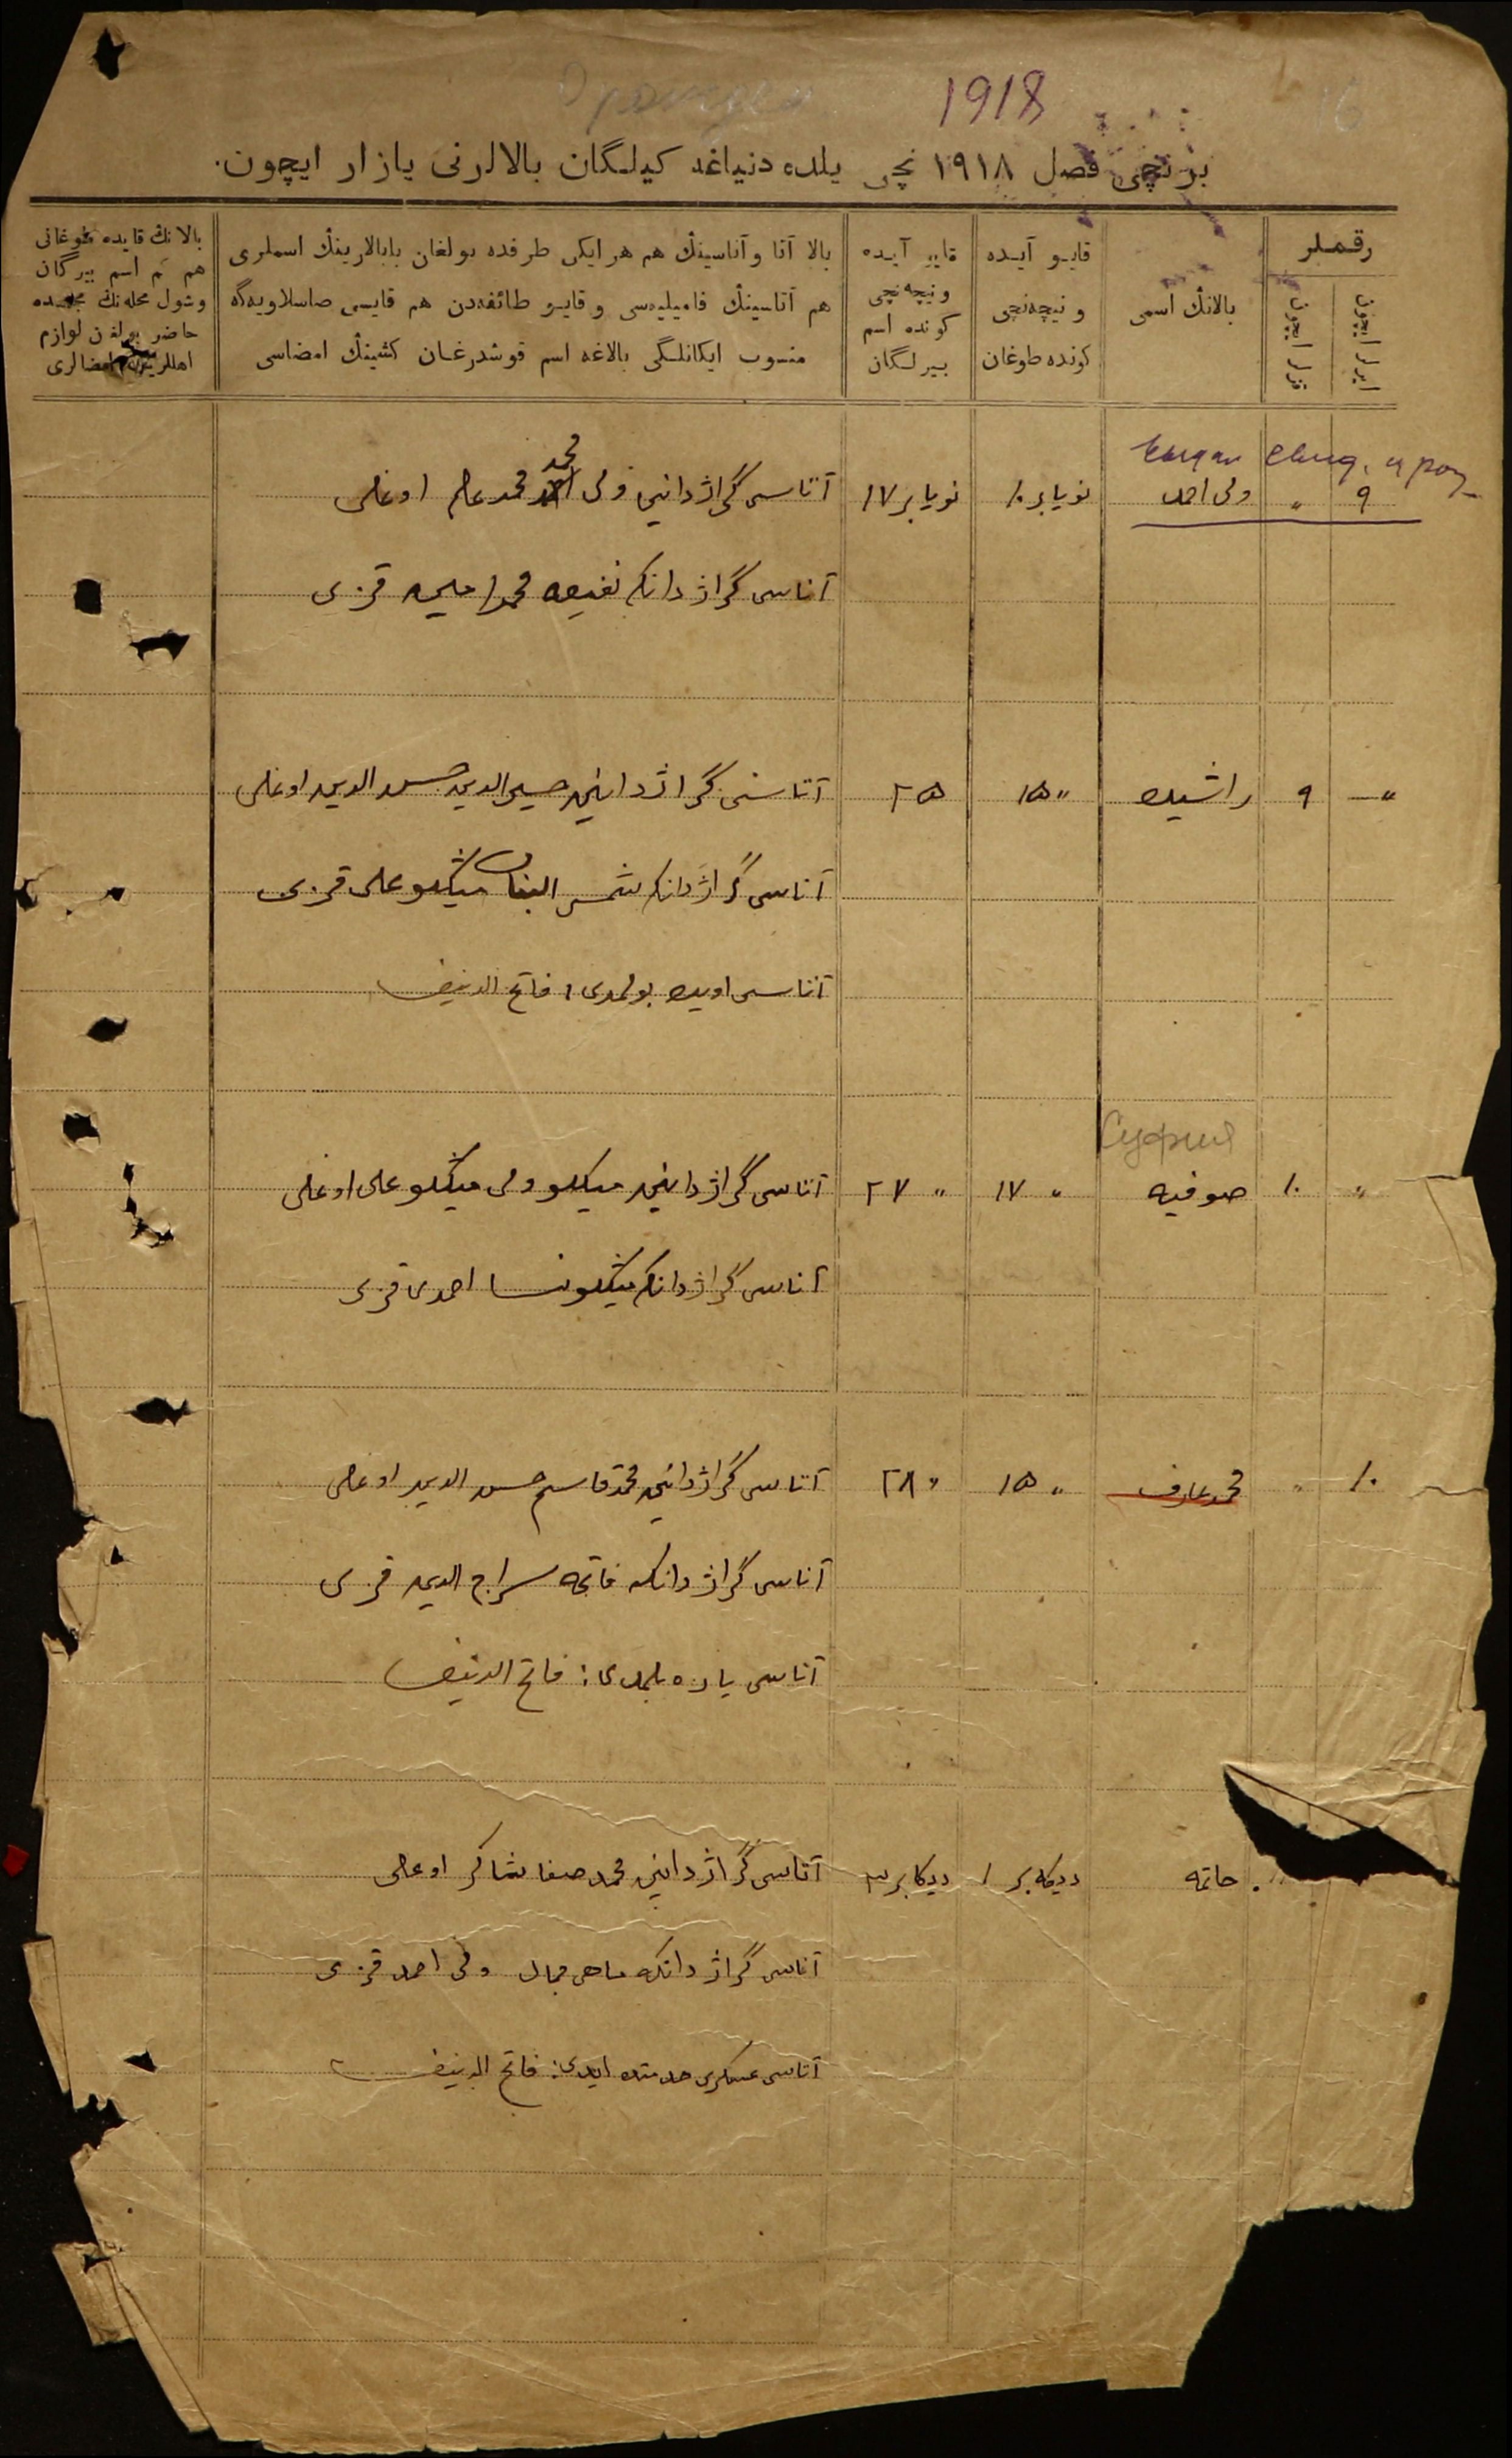 1918
16
برنچی فصل ١٩١٨ نچی یلده دنیاغه کیلگان بالالرنی یازار ایچون.
رقملر
ایرلر ایچون
قزلر ایچون
بالانڭ اسمی
قایو آیده
و نیچه‌نچی
کونده طوغان
قایو آیده
و نیچه‌نچی
کونده اسم
بیرلگان
بالا آتا و آناسینڭ هم هر ایکی طرفده بولغان بابالارینڭ اسملری
هم آتاسینڭ فامیلیه‌سی و قایو طائفه‌دن هم قایسی صاسلاویه‌گه
منسوب ایکانلگی بالاغه اسم قوشدرغان کشینڭ امضاسی
بالانڭ قایده طوغانی
هم کم اسم بیرگان
وشول محله‌نڭ
حاضر بولغان لوازم
اهللرینڭ امضالری
٩ " ولی احمد نویابر ١٠ نویابر ١٧ آتاسی گراژدانین ولی محمد محمد عالم اوغلی
آناسی گراژدانکه نفیسه محمدامین قزی
" ٩ راشیده " ١٥ ٢٥ آتاسی گراژدانین حسین الدین حسن الدین اوغلی
آناسی گراژدانکه شمس البنات مینگلو علی قزی
آتاسی اویده بولمدی: فاتح الدینف
Суфия
" ١٠ صوفیه " ١٧ " ٢٧ آتاسی گراژدانین مینگلو ولی مینگلو علی اوغلی
آناسی گراژدانکه مینگلونسا احمدی قزی
١٠ " محمد عارف " ١٥ " ٢٨ آتاسی گراژدانین محمد قاسم حسن الدین اوغلی
آناسی گراژدانکه فاتحه سراج الدین قزی
آتاسی یازه بلمدی: فاتح الدینف
حاتمه دیکابر ١ دیکابر ٣ آتاسی گراژدانین محمد صفا شاکر اوغلی
آناسی گراژدانکه ماهی جمال ولی احمد قزی
آتاسی عسکری خدمتده ایدی: فاتح الدینف